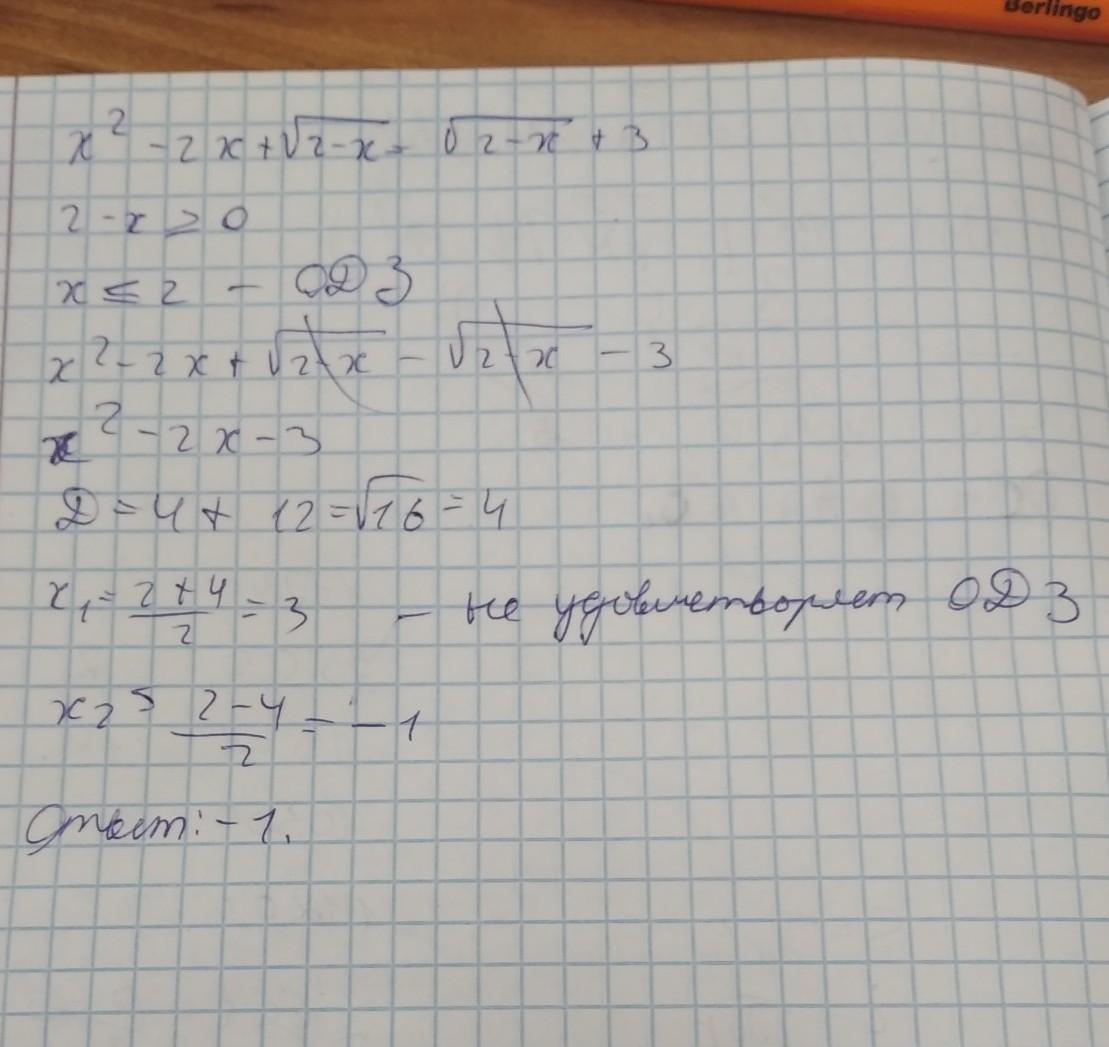 Berlingo
x² - 2x + √2-x = √2-x + 3
2 - x ≥ 0
x ≤ 2 - ОДЗ
x² - 2x + √2-x - √2-x - 3
x² - 2x - 3
D = 4 + 12 = √16 = 4
x₁ = (2+4)/2 = 3 - не удовлетворяет ОДЗ
x₂ = (2-4)/2 = -1
Ответ: -1.